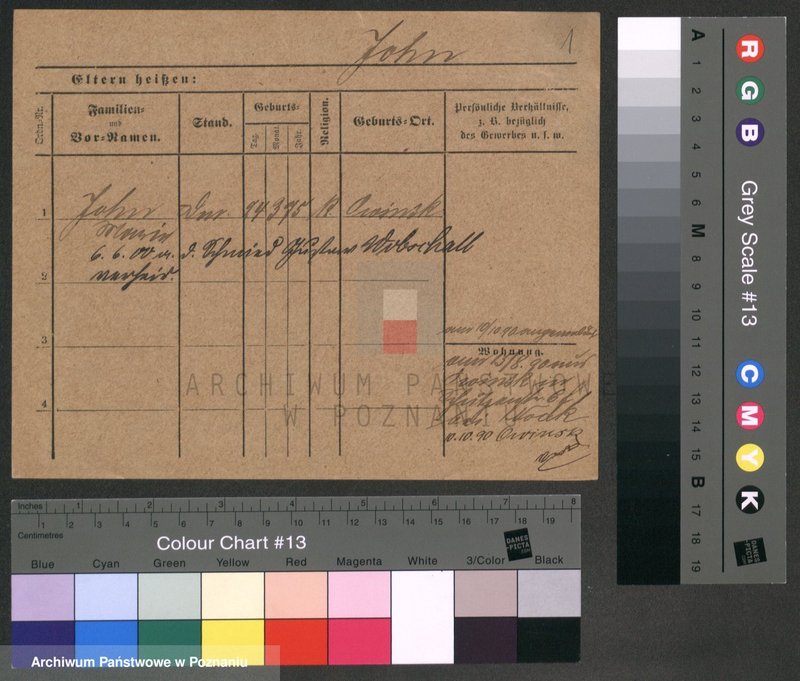 John
1
Eltern heißen:
Ordn.-Nr.
Familien-
und
Vor-Namen.
Stand.
Geburts-
Tag.
Monat.
Jahr.
Religion.
Geburts-Ort.
Persönliche Verhältnisse,
z. B. bezüglich
des Gewerbes u. s. w.
1
John
Marie
K
Owinsk
6.6.00 m. d. Schmied Gustav Wobschall
verheir.
2
3
Wohnung.
4
10.10.90 Owinsk
ARCHIWUM PAŃSTWOWE
W POZNANIU
Inches 1 2 3 4 5 6 7 8
Centimetres 1 2 3 4 5 6 7 8 9 10 11 12 13 14 15 16 17 18 19
Colour Chart #13
DANES
-PICTA
.COM
Blue Cyan Green Yellow Red Magenta White 3/Color Black
Archiwum Państwowe w Poznaniu
A 1 2 3 4 5 6 M 8 9 10 11 12 13 14 15 B 17 18 19
R G B
Grey Scale #13
C M Y K
DANES
-PICTA
.COM